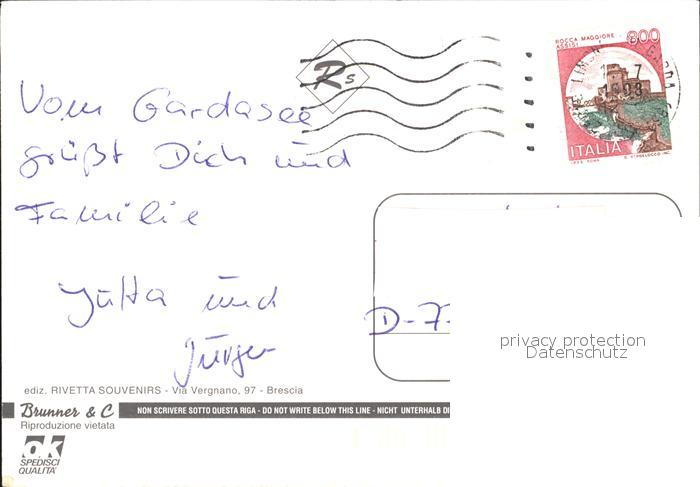 Rs
ROCCA MAGGIORE - 800
ASSISI
7
ITALIA
Vom Gardasee
grüßt Dich und
Familie
Jutta und
Jürgen
D-7-
privacy protection
Datenschutz
ediz. RIVETTA SOUVENIRS - Via Vergnano, 97 - Brescia
Brunner & C
NON SCRIVERE SOTTO QUESTA RIGA - DO NOT WRITE BELOW THIS LINE - NICHT UNTERHALB DI
Riproduzione vietata
ok
SPEDISCI
QUALITA'